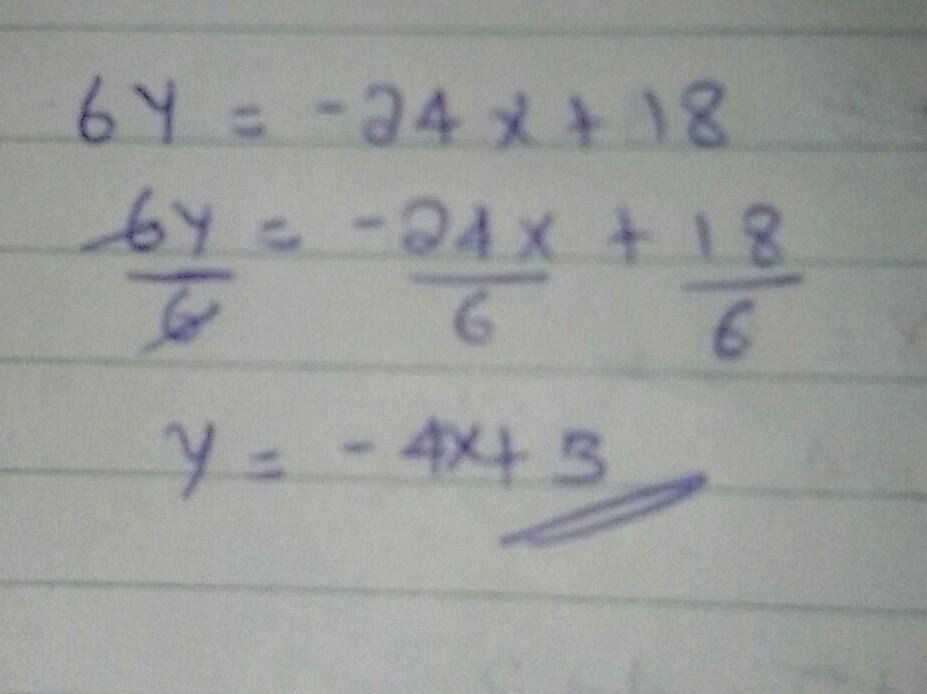 6y = -24x + 18
6y/6 = -24x/6 + 18/6
y = -4x + 3